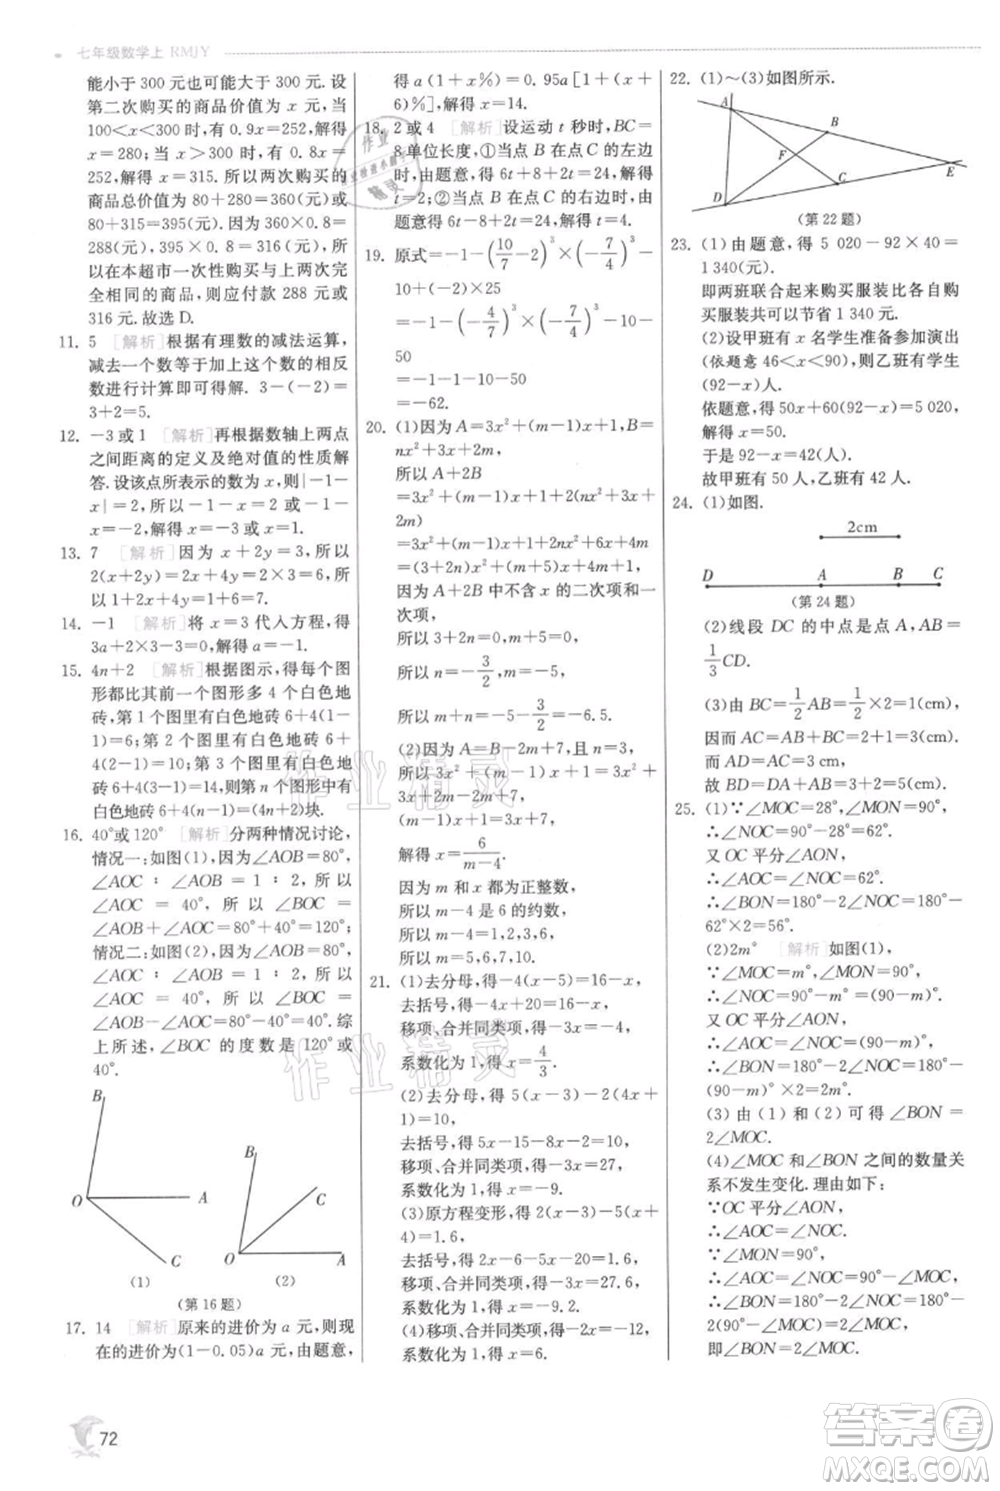 七年级数学上 RMJY
能小于 300 元也可能大于 300 元. 设
第二次购买的商品价值为 x 元, 当
100<x<300 时, 有 0.9x=252, 解得
x=280; 当 x>300 时, 有 0.8x=252,
解得 x=315. 所以两次购买的
商品总价值为 80+280=360(元)或
80+315=395(元). 因为 360×0.8=
288(元), 395×0.8=316(元), 所
以在本超市一次性购买与上两次完
全相同的商品, 则应付款 288 元或
316 元. 故选 D.
11. 5 [解析]根据有理数的减法运算,
减去一个数等于加上这个数的相反
数进行计算即可得解. 3-(-2)=
3+2=5.
12. -3或1 [解析]再根据数轴上两点
之间距离的定义及绝对值的性质解
答. 设该点所表示的数为 x, 则|-1-
x|=2, 所以-1-x=2 或-1-
x=-2, 解得 x=-3或 x=1.
13. 7 [解析]因为 x+2y=3, 所以
2(x+2y)=2x+4y=2×3=6, 所
以 1+2x+4y=1+6=7.
14. -1 [解析]将 x=3 代入方程, 得
3a+2×3-3=0, 解得 a=-1.
15. 4n+2 [解析]根据图示, 得每个图
形都比其前一个图形多 4 个白色地
砖, 第 1 个图里有白色地砖 6+4(1-
1)=6, 第 2 个图里有白色地砖 6+
4(2-1)=10, 第 3 个图里有白色地砖
6+4(3-1)=14, 则第 n 个图形中有
白色地砖 6+4(n-1)=(4n+2)块.
16. 40°或120° [解析]分两种情况讨论,
情况一:如图(1), 因为∠AOB=80°,
∠AOC : ∠AOB = 1 : 2, 所以
∠AOC = 40°, 所以 ∠BOC =
∠AOB+∠AOC=80°+40°=120°;
情况二:如图(2), 因为∠AOB=80°,
∠AOC : ∠AOB = 1 : 2, 所以
∠AOC = 40°, 所以 ∠BOC =
∠AOB-∠AOC=80°-40°=40°. 综
上所述, ∠BOC 的度数是 120°或
40°.
B
O A
C
(1)
B
C
O A
(2)
(第 16 题)
17. 14 [解析]原来的进价为 a 元, 则现
在的进价为(1-0.05)a 元, 由题意,
得 a(1+x%)=0.95a[1+(x+
6)%], 解得 x=14.
18. 2 或 4 [解析]设运动 t 秒时, BC=
8单位长度, ①当点 B 在点 C 的左
边时, 由题意, 得 6t+8+2t=24, 解得
t=2; ②当点 B 在点 C 的右边时, 由
题意得 6t-8+2t=24, 解得 t=4.
19. 原式=-1-(10/7-2)³×(-7/4)³-
10+(-2)×25
=-1-(-4/7)³×(-7/4)³-10-
50
=-1-1-10-50
=-62.
20. (1)因为 A=3x²+(m-1)x+1, B=
nx²+3x+2m,
所以 A+2B
=3x²+(m-1)x+1+2(nx²+3x+
2m)
=3x²+(m-1)x+1+2nx²+6x+4m
=(3+2n)x²+(m+5)x+4m+1.
因为 A+2B 中不含 x 的二次项和一
次项,
所以 3+2n=0, m+5=0,
所以 n=-3/2, m=-5,
所以 m+n=-5-3/2=-6.5.
(2)因为 A=B-2x²+7, n=5,
所以 3x²+(m-1)x+1=5x²+3x+
2m-2x²+7,
(m-1)x+1=3x+7,
解得 x=6/(m-4).
因为 m 和 x 都为正整数,
所以 m-4 是 6 的约数,
所以 m-4=1,2,3,6,
所以 m=5,6,7,10.
21. (1)去分母, 得-4(x-5)=16-x,
去括号, 得-4x+20=16-x,
移项、合并同类项, 得-3x=-4,
系数化为 1, 得 x=4/3.
(2)去分母, 得 5(x-3)-2(4x+
1)=10,
去括号, 得 5x-15-8x-2=10,
移项、合并同类项, 得-3x=27,
系数化为 1, 得 x=-9.
(3)原方程变形, 得 2(x-3)-5(x+
4)=1.6,
去括号, 得 2x-6-5x-20=1.6,
移项、合并同类项, 得-3x=27.6,
系数化为 1, 得 x=-9.2.
(4)移项、合并同类项, 得 2x=12,
系数化为 1, 得 x=6.
22. (1)～(3)如图所示.
A
B
F
E
D
C
(第 22 题)
23. (1)由题意, 得 5 020-92×40=
1 340(元).
即两班联合起来购买服装比各自购
买服装共可以节省 1 340 元.
(2)设甲班有 x 名学生准备参加演出
(依题意 46<x<90), 则乙班有学生
(92-x)人.
依题意, 得 50x+60(92-x)=5 020,
解得 x=50.
于是 92-x=42(人).
故甲班有 50 人, 乙班有 42 人.
24. (1)如图.
2cm
D A B C
(第 24 题)
(2)线段 DC 的中点是点 A, AB=
1/3 CD.
(3)由 BC=1/2 AB=1/2×2=1,
因而 AC=AB+BC=2+1=3.
而 AD=AC=3,
故 BD=DA+AB=3+2=5.
25. (1)∵∠MOC=28°, ∠MON=90°,
∴∠NOC=90°-28°=62°.
又 OC 平分∠AON,
∴∠AOC=∠NOC=62°.
∴∠BON=180°-2∠NOC=180°-
62°×2=56°.
(2)2m° [解析]如图(1),
∵∠MOC=m°, ∠MON=90°,
∴∠NOC=90°-m°=(90-m)°.
又 OC 平分∠AON,
∴∠AOC=∠NOC=(90-m)°.
∴∠BON=180°-2∠NOC=180°-
(90-m)°×2=2m°.
(3)由(1)和(2)可得∠BON=
2∠MOC.
(4)∠MOC 和∠BON 之间的数量关
系不发生变化. 理由如下:
∵OC 平分∠AON,
∴∠AOC=∠NOC.
∵∠MON=90°,
∴∠AOC=∠NOC=90°-∠MOC.
∴∠BON=180°-2∠NOC=180°-
2(90°-∠MOC)=2∠MOC,
即∠BON=2∠MOC.
72
作业精灵
作业精灵
答案圈
MXQE.COM